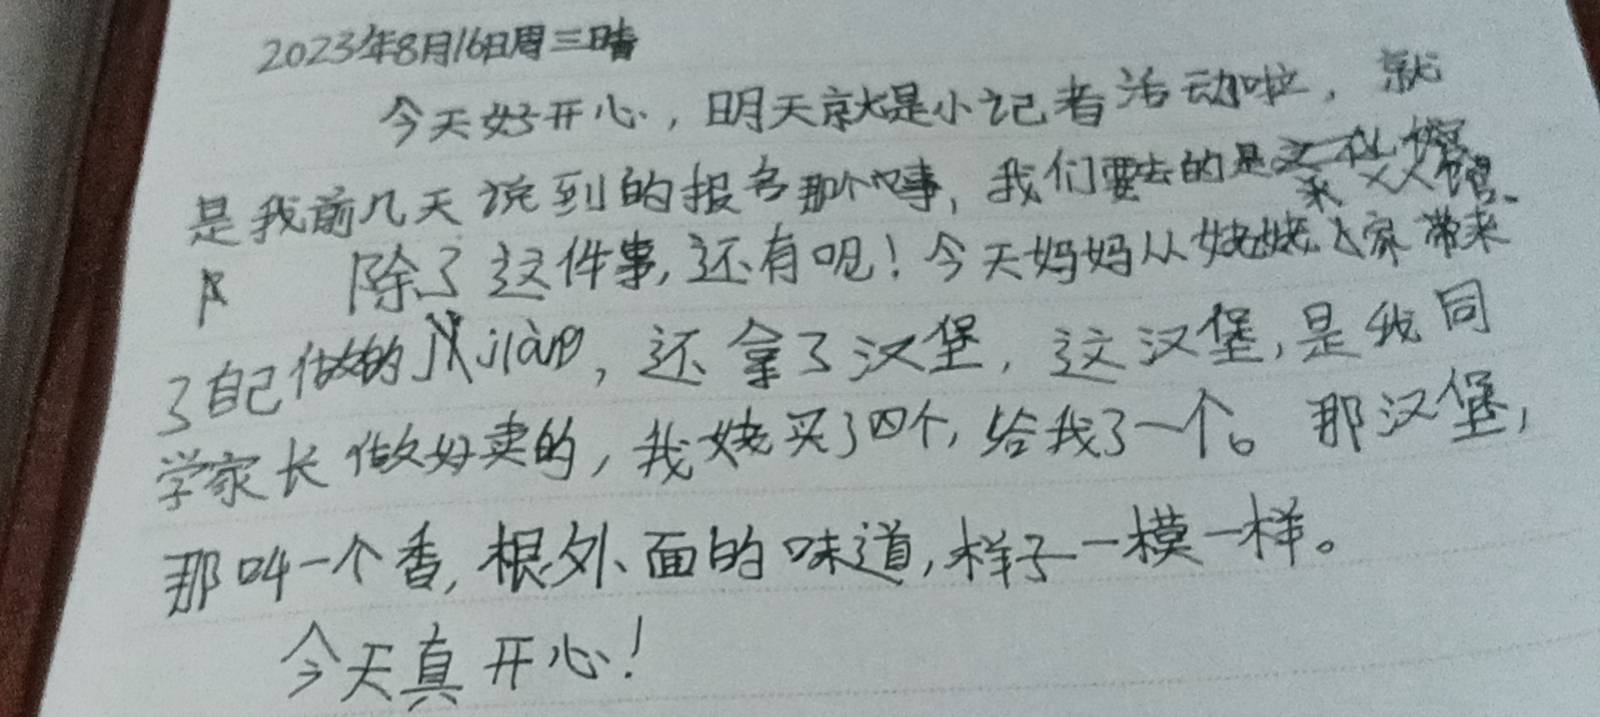 2023年8月16日周三晴
今天好开心，明天就是小记者活动啦，就
是我前几天说到的报名那个事，我们要去的是
除了这件事，还有呢！今天妈妈从姥姥家带来
了自己做的jiàng，还拿了汉堡，这汉堡，是我同
学家长做好卖的，我姥买了四个，给我了一个。那汉堡，
那叫一个香，根外面的味道，样子一模一样。
今天真开心！